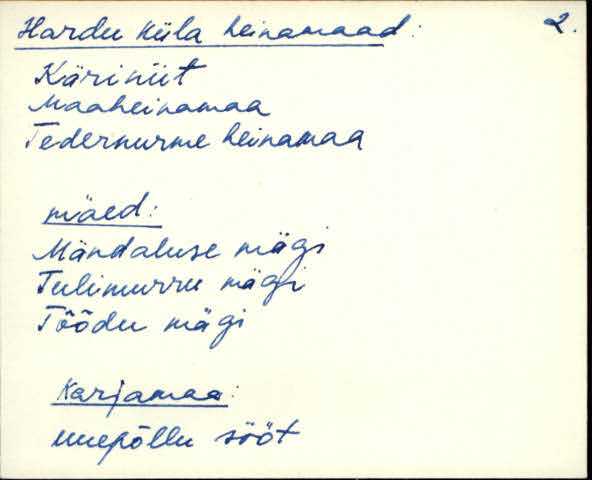 Hardu küla heinamaad: 2.
Käriniit
Maaheinamaa
Tedernurme heinamaa
mäed:
Mändaluse mägi
Tulimurru mägi
Tõõdu mägi
Karjamaa:
uuepõllu sööt